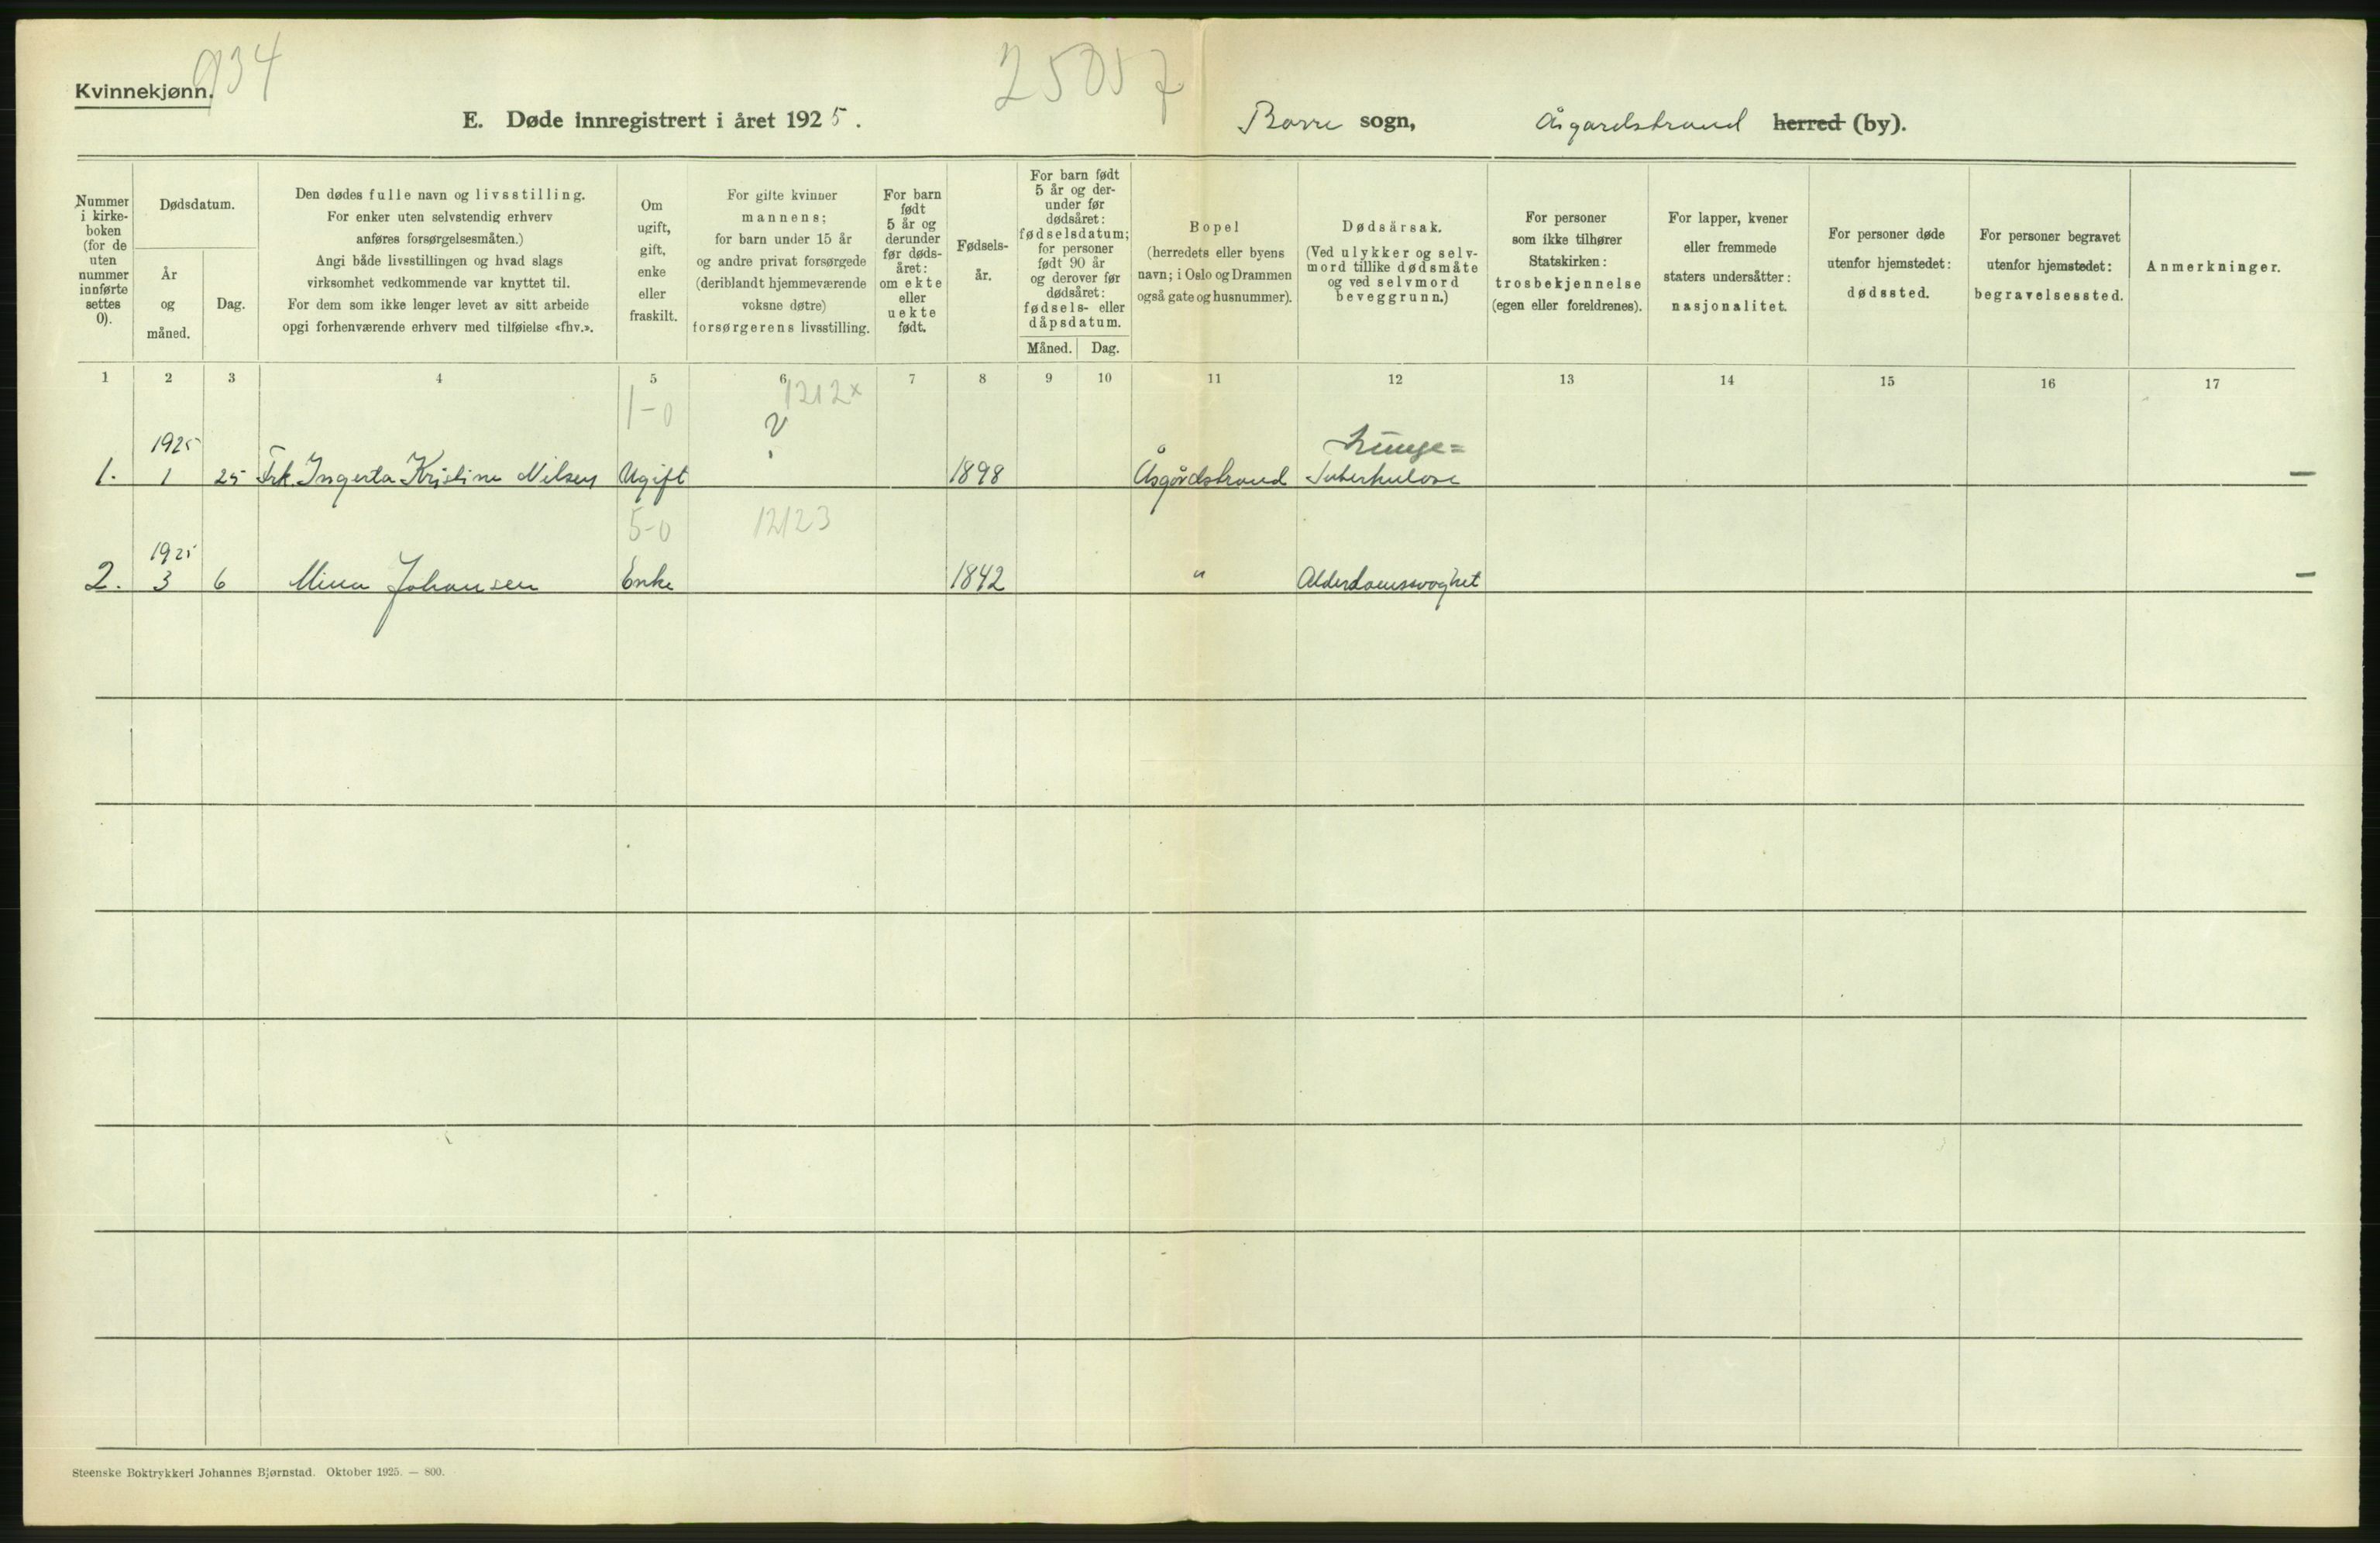 934
25057
Kvinnekjønn.
E. Døde innregistrert i året 1925.
Borre sogn, Åsgardstrand herred (by).
Nummer i kirke-boken (for de uten nummer innførte settes 0).
Dødsdatum.
År og måned.
Dag.
Den dødes fulle navn og livsstilling.
For enker uten selvstendig erhverv
anføres forsørgelsesmåten.)
Angi både livsstillingen og hvad slags
virksomhet vedkommende var knyttet til.
For dem som ikke lenger levet av sitt arbeide
opgi forhenværende erhverv med tilføielse «fhv.».
Om ugift, gift, enke eller fraskilt.
For gifte kvinner
mannens;
for barn under 15 år
og andre privat forsørgede
(deriblandt hjemmeværende
voksne døtre)
forsørgerens livsstilling.
For barn født 5 år og derunder før døds-året: om ekte eller uekte født.
Fødsels-år.
For barn født
5 år og der-
under før
dødsåret:
fødselsdatum;
for personer
født 90 år
og derover før
dødsåret:
fødsels- eller
dåpsdatum.
Måned. Dag.
Bopel
(herredets eller byens
navn; i Oslo og Drammen
også gate og husnummer).
Dødsårsak.
(Ved ulykker og selv-
mord tillike dødsmåte
og ved selvmord
beveggrunn.)
For personer
som ikke tilhører
Statskirken:
trosbekjennelse
(egen eller foreldrenes).
For lapper, kvener
eller fremmede
staters undersåtter:
nasjonalitet.
For personer døde
utenfor hjemstedet:
dødssted.
For personer begravet
utenfor hjemstedet:
begravelsessted.
Anmerkninger.
1 2 3 4 5 6 7 8 9 10 11 12 13 14 15 16 17
1-0 1212x
1925 ? Lunge=
1. 1 25 Frk. Ingerta Kristine Nilsen Ugift 1898 Åsgårdstrand Tuberkulose —
5-0 12123
1925
2. 3 6 Mina Johansen Enke 1842 " Alderdomssvaghet —
Steenske Boktrykkeri Johannes Bjørnstad. Oktober 1925. — 800.